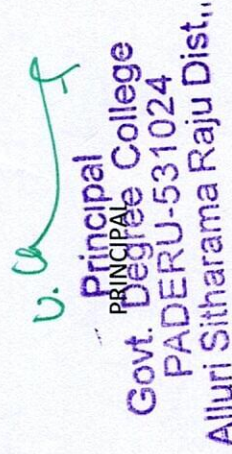 Principal
PRINCIPAL
Govt. Degree College
PADERU-531024
Alluri Sitharama Raju Dist.,